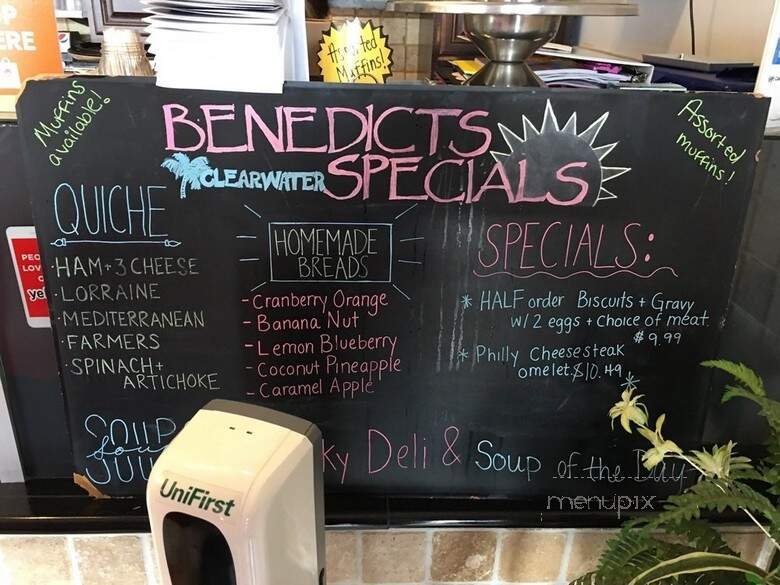 Assorted
Muffins!
Muffins
available!
BENEDICTS
CLEARWATER SPECIALS
Assorted
muffins!
QUICHE
·HAM+3 CHEESE
·LORRAINE
·MEDITERRANEAN
·FARMERS
·SPINACH+
ARTICHOKE
HOMEMADE
BREADS
-Cranberry Orange
-Banana Nut
-Lemon Blueberry
-Coconut Pineapple
-Caramel Apple
SPECIALS:
* HALF order Biscuits + Gravy
w/ 2 eggs + choice of meat.
$9.99
* Philly Cheesesteak
omelet. $10.49
*
SOUP
ky Deli & Soup of the Day
UniFirst
menupix
ERE
PEO
LOV
yel